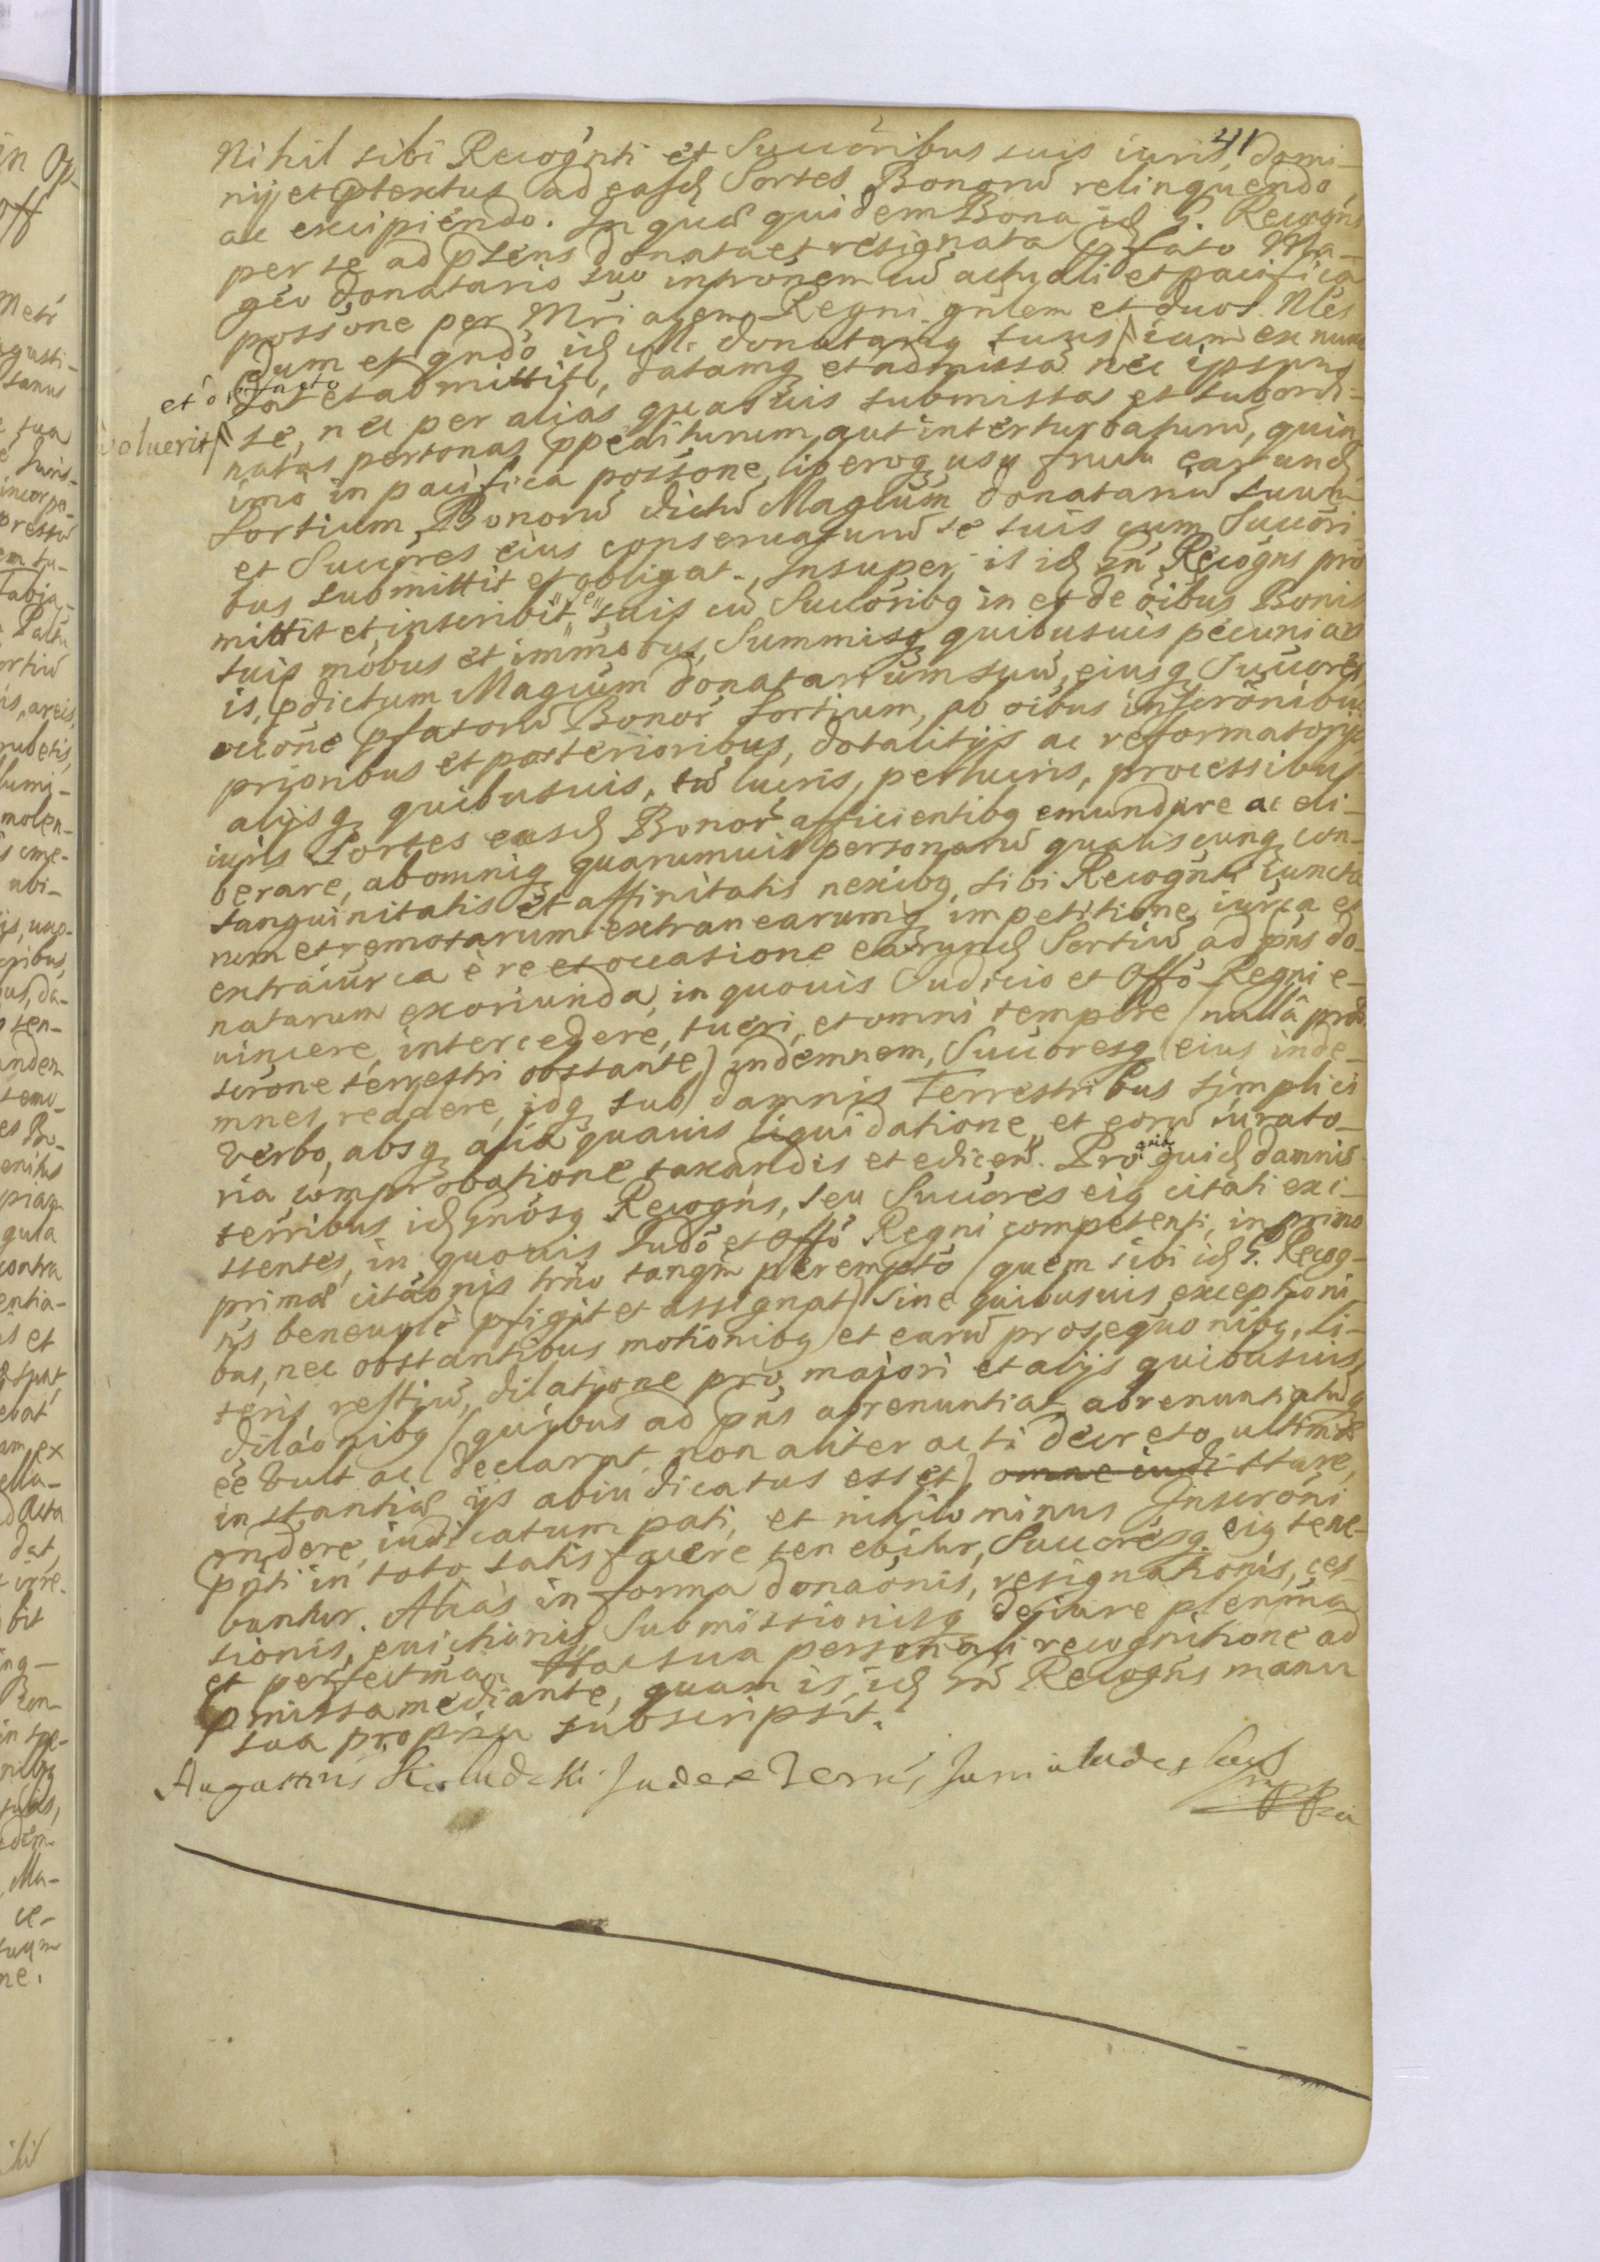 41
Nihil sibi Recognti et Succoribus suis iuris, domi-
nij et ptextus ad easd Sortes Bonorū relinquendo
ac excipiendo. In quæ quidem Bona id G. Recogns
per se ad psens donata et resignata pfato Ma-
gco donatario suo intronem cū actuali et pacifica
possone per Mrialem Regni gnlem et duos Nles
dum et qndo id M. donatariq suus iam ex nunc
et de facto
voluerit
dat et admittit, datamq et admissā nec ipsum
se, nec per alias quasuis submissas et subordi-
natas personas ppediturum aut interturbaturū, quin
imò in pacifica possone, liberoq usu fruu earund
Sortium Bonorū dictū Magcum donatariū suum
et Succores eius conseruaturū se suis cum Succori-
bus submittit et obligat. Insuper is id Gn Recogns pro
mittit et inscribit "se" suis cū Succoribq in et de oibus Bonis
suis mobus et immobus, Summisq quibusuis pecuniar
is, pdictum Magcum donatarium suū, eiusq Succores
occone pfatorū Bonor Sortium, ab oibus inscronibus
prioribus et posterioribus, dotalitijs ac reformatorijs
alijsq quibusuis, tū lucris, perlucris, processibus
iuris Sortes easd Bonor afficientibq emundare ac eli-
berare, ab omniq quarumuis personarū qualiscunq con-
sanguinitatis et affinitatis nexibq, sibi Recognti iuncta
rum et remotarum extranearumq impetitione iurca et
extraiurca è re et occasione earund Sortiū ad pns do-
natarum exoriunda, in quouis Iudicio et Offo Regni e-
uincere, intercedere, tueri, et omni tempore (nullâ prae
scrone terrestri obstante) indemnem, Succoresq eius inde-
mnes reddere, idq sub damnis Terrestribus simplici
Verbo, absq alia quauis liquidatione, et eorū iurato-
ria comprobatione taxandis et edicen. Pro quibq quid damnis
terribus id Gnosq Recogns, seu Succores eiq citati exi-
stentes, in quouis Iudo et Offo Regni competenti, in primo
primæ citaonis trno tanqm perempto (quem sibi id G. Recog-
ns beneuole pfigit et assignat) Sine quibusuis exceptioni-
bus, nec obstantibus motionibq et earū prosequonibq, li-
teris restiū, dilatione prò majori et alijs quibusuis
dilaonibq (quibus ad pns abrenuntiat abrenuntiatūq
ee Vult ac declarat non aliter ac si decreto ultimæ
instantiæ ijs abiudicatus esset) stare,
rndere, iudicatum pati, et nihilominus Inscroni
pnti in toto satisfacere tenebitur, Succoresq eiq tene-
buntur. Aliàs in forma donaonis, resignationis, ces-
sionis, euictionis Submissionisq de iure plenma
et perfectma. Hac sua personali recognitione ad
pmissa mediante, quam is id Gn Recogns manu
sua propria subscripsit.
Augustinus Judex Terrs,